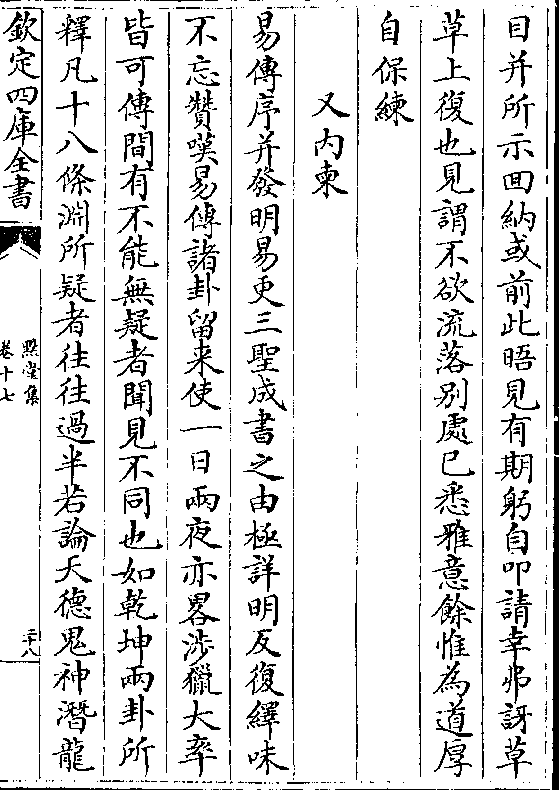 目并所示回納或前此晤見有期躬自叩請幸弗訝草
草上復也見謂不欲流落别處已悉雅意餘惟為道厚
自保練
又内柬
易傳序并發明易更三聖成書之由極詳明反復繹味
不忘贊嘆易傳諸卦留来使一日兩夜亦畧涉獵大率
皆可傳間有不能無疑者聞見不同也如乾坤兩卦所
釋凡十八條淵所疑者往往過半若論天德鬼神潛龍
欽定四庫全書
卷十七
集